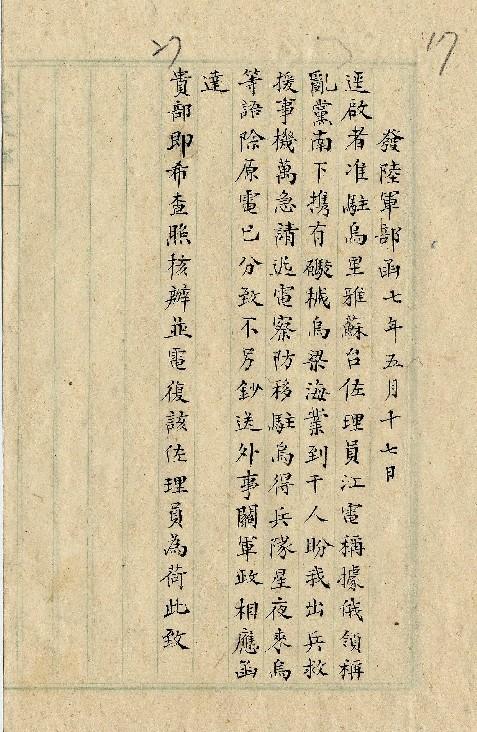 17
發陸軍部函七年五月十七日
逕啟者准駐烏里雅蘇台佐理員江電稱據俄領稱
亂黨南下携有礮械烏梁海業到千人盼我出兵救
援事機萬急請迅電察防移駐烏得兵隊星夜來烏
等語除原電已分致不另鈔送外事關軍政相應函
達
貴部即希查照核辦並電復該佐理員為荷此致